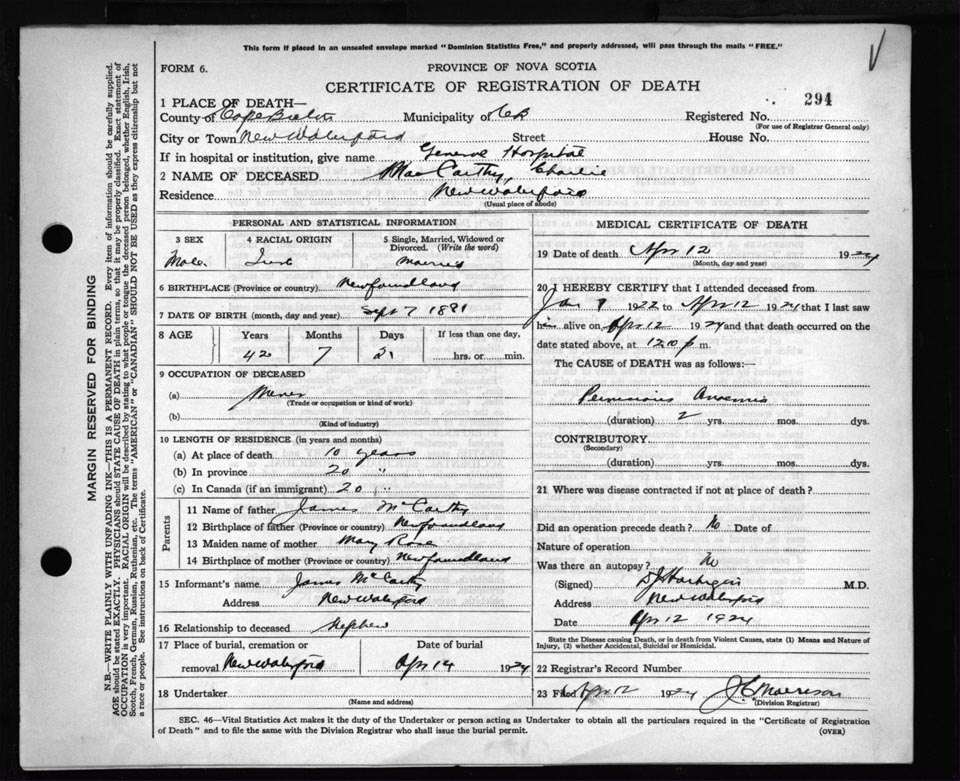 This form if placed in an unsealed envelope marked "Dominion Statistics Free," and properly addressed, will pass through the mails "FREE."
FORM 6.
PROVINCE OF NOVA SCOTIA
CERTIFICATE OF REGISTRATION OF DEATH
294
1 PLACE OF DEATH—
County of Cape Breton Municipality of CB Registered No.
(For use of Registrar General only)
City or Town New Waterford Street House No.
If in hospital or institution, give name General Hospital
2 NAME OF DECEASED MacCarthy, Charlie
Residence New Waterford
(Usual place of abode)
PERSONAL AND STATISTICAL INFORMATION
3 SEX 4 RACIAL ORIGIN 5 Single, Married, Widowed or Divorced. (Write the word)
Male Irish Married
6 BIRTHPLACE (Province or country) Newfoundland
7 DATE OF BIRTH (month, day and year) Sept 7 1881
8 AGE Years Months Days If less than one day,
42 7 hrs. or min.
9 OCCUPATION OF DECEASED
(a) Miner
(Trade or occupation or kind of work)
(b)
(Kind of industry)
10 LENGTH OF RESIDENCE (in years and months)
(a) At place of death 10 years
(b) In province 20 "
(c) In Canada (if an immigrant) 20 "
Parents
11 Name of father James McCarthy
12 Birthplace of father (Province or country) Newfoundland
13 Maiden name of mother Mary Rose
14 Birthplace of mother (Province or country) Newfoundland
15 Informant's name James McCarthy
Address New Waterford
16 Relationship to deceased Nephew
17 Place of burial, cremation or removal New Waterford Date of burial Apr 14 1924
18 Undertaker
(Name and address)
MEDICAL CERTIFICATE OF DEATH
19 Date of death Apr 12 1924
(Month, day and year)
20 I HEREBY CERTIFY that I attended deceased from
Jan 1 1922 to Apr 12 1924 that I last saw
him alive on Apr 12 1924 and that death occurred on the
date stated above, at 120 p m.
The CAUSE OF DEATH was as follows:—
Pernicious Anaemia
(duration) 2 yrs. mos. dys.
CONTRIBUTORY
(Secondary)
(duration) yrs. mos. dys.
21 Where was disease contracted if not at place of death?
Did an operation precede death? No Date of
Nature of operation
Was there an autopsy? No
(Signed) M.D.
Address New Waterford
Date Apr 12 1924
State the Disease causing Death, or in death from Violent Causes, state (1) Means and Nature of
Injury, (2) whether Accidental, Suicidal or Homicidal.
22 Registrar's Record Number
23 Filed Apr 12 1924 J C Morrison
(Division Registrar)
SEC. 46—Vital Statistics Act makes it the duty of the Undertaker or person acting as Undertaker to obtain all the particulars required in the "Certificate of Registration
of Death" and to file the same with the Division Registrar who shall issue the burial permit.
(OVER)
MARGIN RESERVED FOR BINDING
N.B.—WRITE PLAINLY WITH UNFADING INK—THIS IS A PERMANENT RECORD. Every item of information should be carefully supplied.
AGE should be stated EXACTLY. PHYSICIANS should STATE CAUSE OF DEATH in plain terms, so that it may be properly classified. Exact statement of
OCCUPATION is very important. RACIAL ORIGIN will be described by stating to what people or tongue the deceased person belonged, whether English, Irish,
Scotch, French, German, Russian, Ruthenian, etc. The terms "AMERICAN" or "CANADIAN" SHOULD NOT BE USED as they express citizenship but not
a race or people. See instructions on back of Certificate.